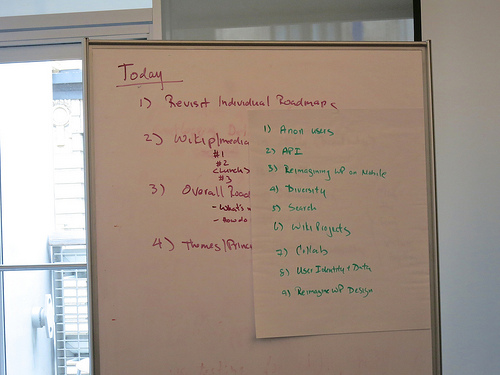 Today
1) Revisit Individual Roadmaps
2) Wikip/media
#1
#2
<Lunch>
#3
3) Overall Road
- What's
- How do
4) Themes/Princ
1) Anon users
2) API
3) Reimagining WP on Mobile
4) Diversity
5) Search
6) WikiProjects
7) Collab
8) User Identity + Data
9) Reimagine WP Design